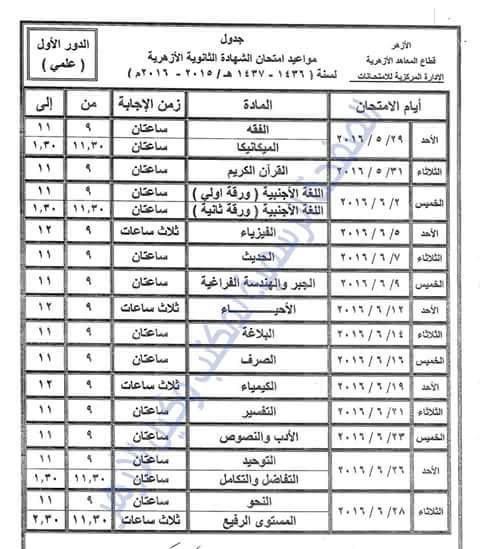 الأزهر
قطاع المعاهد الأزهرية
الإدارة المركزية للامتحانات
جدول
مواعيد امتحان الشهادة الثانوية الأزهرية
لسنة ( ١٤٣٦ - ١٤٣٧ هـ / ٢٠١٥ - ٢٠١٦ م )
الدور الأول
( علمي )
أيام الامتحان المادة زمن الإجابة من إلى
الأحد ٢٩ / ٥ / ٢٠١٦ الفقه ساعتان ٩ ١١
الميكانيكا ساعتان ١١,٣٠ ١,٣٠
الثلاثاء ٣١ / ٥ / ٢٠١٦ القرآن الكريم ساعتان ٩ ١١
الخميس ٢ / ٦ / ٢٠١٦ اللغة الأجنبية ( ورقة أولي ) ساعتان ٩ ١١
اللغة الأجنبية ( ورقة ثانية ) ساعتان ١١,٣٠ ١,٣٠
الأحد ٥ / ٦ / ٢٠١٦ الفيزياء ثلاث ساعات ٩ ١٢
الثلاثاء ٧ / ٦ / ٢٠١٦ الحديث ساعتان ٩ ١١
الخميس ٩ / ٦ / ٢٠١٦ الجبر والهندسة الفراغية ساعتان ٩ ١١
الأحد ١٢ / ٦ / ٢٠١٦ الأحيـــــاء ثلاث ساعات ٩ ١٢
الثلاثاء ١٤ / ٦ / ٢٠١٦ البلاغة ساعتان ٩ ١١
الخميس ١٦ / ٦ / ٢٠١٦ الصرف ساعتان ٩ ١١
الأحد ١٩ / ٦ / ٢٠١٦ الكيمياء ثلاث ساعات ٩ ١٢
الثلاثاء ٢١ / ٦ / ٢٠١٦ التفسير ساعتان ٩ ١١
الخميس ٢٣ / ٦ / ٢٠١٦ الأدب والنصوص ساعتان ٩ ١١
الأحد ٢٦ / ٦ / ٢٠١٦ التوحيد ساعتان ٩ ١١
التفاضل والتكامل ساعتان ١١,٣٠ ١,٣٠
الثلاثاء ٢٨ / ٦ / ٢٠١٦ النحو ساعتان ٩ ١١
المستوى الرفيع ثلاث ساعات ١١,٣٠ ٢,٣٠